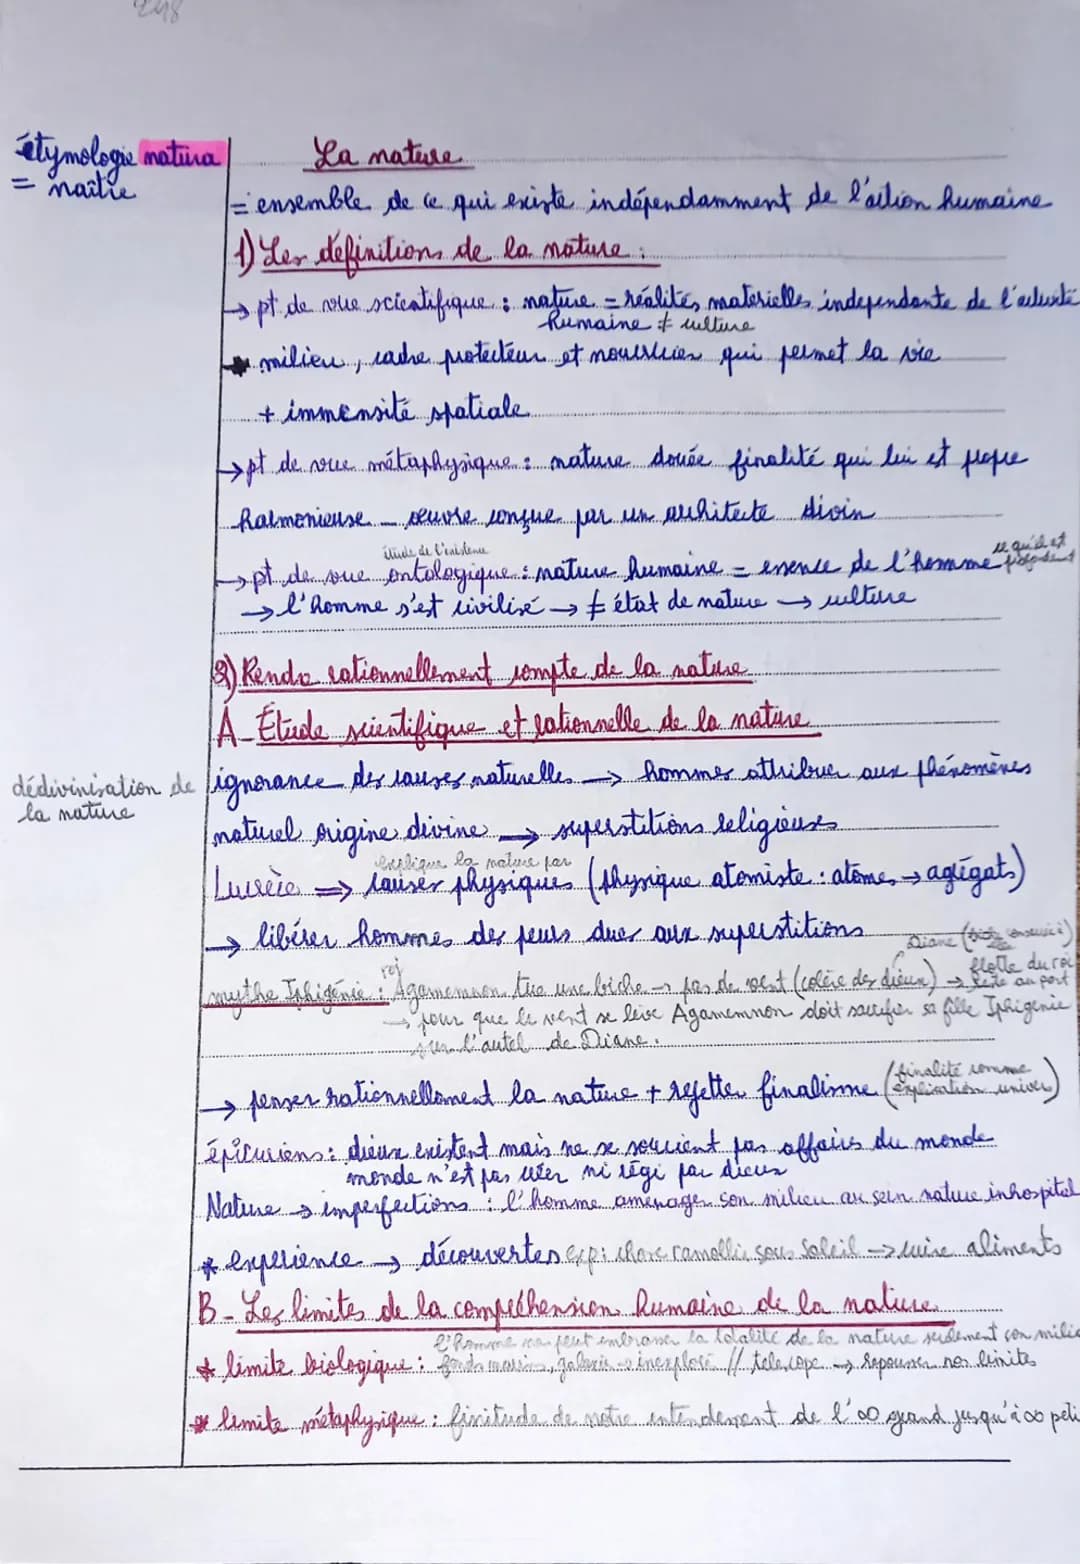 248
étymologie natura
= naître
La nature
= ensemble de ce qui existe indépendamment de l'action humaine
1) Les définitions de la nature :
→ pt de vue scientifique : nature = réalités materielles independante de l'activité
humaine ≠ culture
* milieu, cadre protecteur et nourricier qui permet la vie
+ immensité spatiale
→ pt de vue métaphysique : nature douée finalité qui lui est propre
harmonieuse _ œuvre conçue par un architecte divin
étude de l'existence
→ pt de vue ontologique : nature humaine = essence de l'homme ce qu'il est profondemt
→ l'homme s'est civilisé → ≠ état de nature → culture
2) Rendre rationnellement compte de la nature
A - Étude scientifique et rationnelle de la nature
dédivinisation de
la nature
ignorance des causes naturelles → hommes attribuer aux phénomènes
naturel origine divine → superstitions religieuses
explique la nature par
Lucrèce ⇒ causes physiques (physique atomiste : atomes → agrégats)
→ libérer hommes des peurs dues aux superstitions
Diane
roi
flotte du roi
mythe Iphigénie : Agamemnon tue une biche → pas de vent (colère des dieux) → reste au port
→ pour que le vent se lève Agamemnon doit sacrifier sa fille Iphigenie
sur l'autel de Diane.
→ penser rationnellement la nature + rejetter finalisme (finalité comme explication univers)
épicuriens : dieux existent mais ne se soucient pas affaires du monde
monde n'est pas créer ni régi par dieux
Nature → imperfections : l'homme amenager son milieu au sein nature inhospital
* experience → découvertes exp: chose ramollie sous Soleil → cuire aliments
B - Les limites de la compréhension humaine de la nature
l'homme ne peut embrasser la totalité de la nature seulement son milie
* limite biologique : fonds marins, galaxie → inexploré // telescope → repousser nos limites
* limite métaphysique : finitude de notre entendement de l'∞ grand jusqu'à ∞ peti